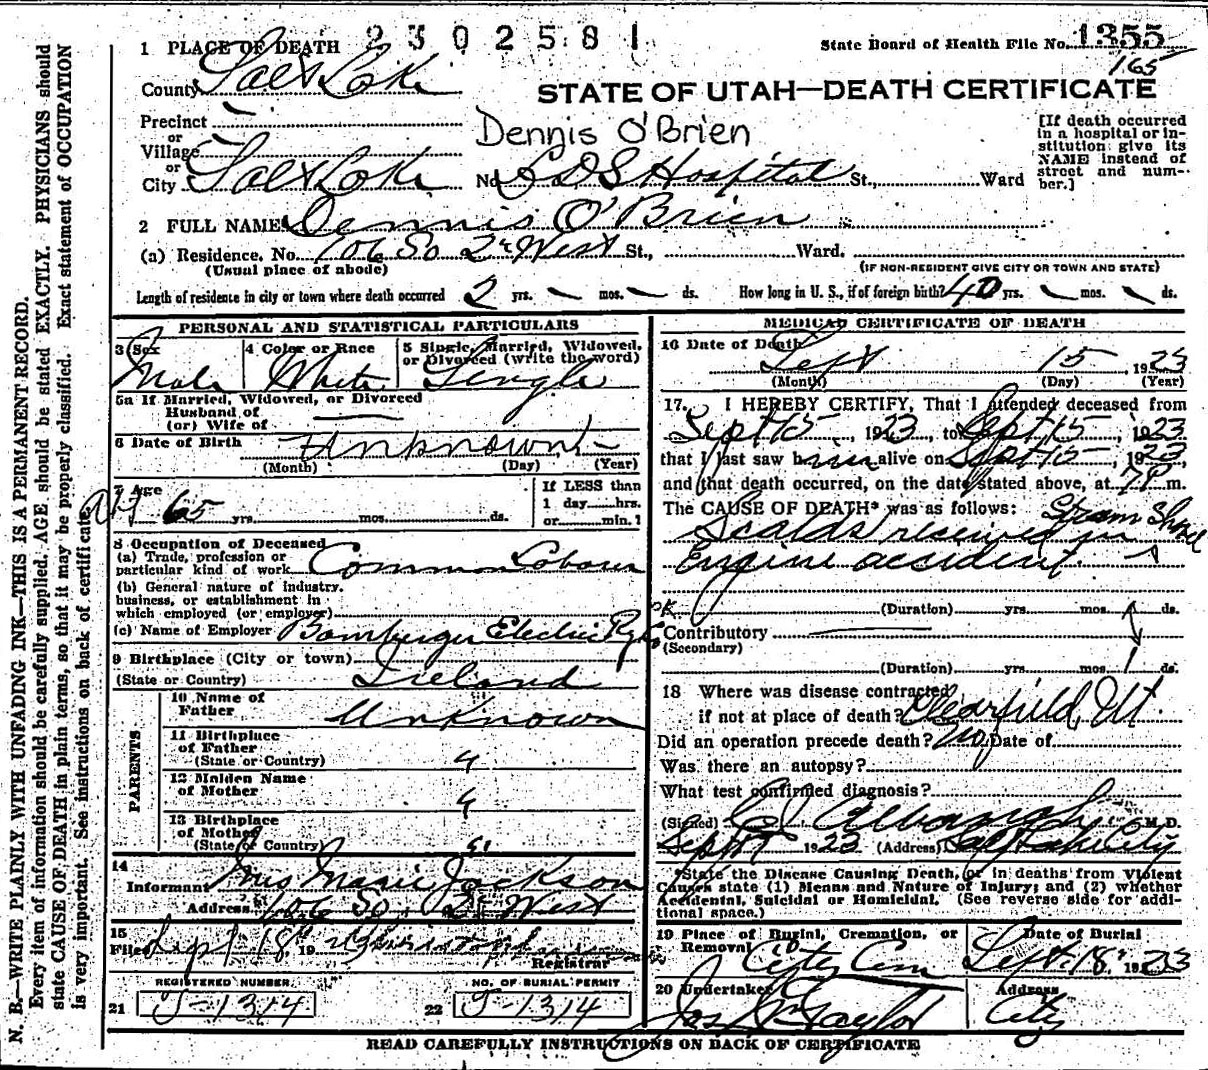 2302581
State Board of Health File No. 1355
165
1 PLACE OF DEATH
County Salt Lake
STATE OF UTAH—DEATH CERTIFICATE
Precinct
or
Village
or
City Salt Lake
Dennis O'Brien
No. L D S Hospital St., Ward
[If death occurred
in a hospital or in-
stitution give its
NAME instead of
street and num-
ber.]
2 FULL NAME Dennis O'Brien
(a) Residence. No. 106 So 2d West St., Ward.
(Usual place of abode)
(IF NON-RESIDENT GIVE CITY OR TOWN AND STATE)
Length of residence in city or town where death occurred 2 yrs. — mos. — ds. How long in U. S., if of foreign birth? 40 yrs. — mos. — ds.
PERSONAL AND STATISTICAL PARTICULARS
3 Sex Male
4 Color or Race White
5 Single, Married, Widowed,
or Divorced (write the word)
Single
5a If Married, Widowed, or Divorced
Husband of
(or) Wife of —
6 Date of Birth Unknown
(Month) (Day) (Year)
7 Age
65 yrs. mos. ds.
If LESS than
1 day hrs.
or min.?
8 Occupation of Deceased
(a) Trade, profession or
particular kind of work Common Labour
(b) General nature of industry,
business, or establishment in
which employed (or employer)
(c) Name of Employer Bamberger Electric Ry Co
9 Birthplace (City or town)
(State or Country) Ireland
PARENTS
10 Name of
Father Unknown
11 Birthplace
of Father
(State or Country) "
12 Maiden Name
of Mother "
13 Birthplace
of Mother
(State or Country) "
14
Informant Mrs Marie Jackson
Address 106 So. 2d West
15
Filed Sept 18, 19
Registrar
REGISTERED NUMBER.
21 J-1314
NO. OF BURIAL PERMIT
22 J-1314
MEDICAL CERTIFICATE OF DEATH
16 Date of Death
Sept 15, 1923
(Month) (Day) (Year)
17. I HEREBY CERTIFY, That I attended deceased from
Sept 15, 1923, to Sept 15, 1923
that I last saw him alive on Sept 15, 1923,
and that death occurred, on the date stated above, at 7 P m.
The CAUSE OF DEATH* was as follows:
Scalds received in Steam Shovel
Engine accident.
(Duration) yrs. mos. ds.
Contributory —
(Secondary)
(Duration) yrs. mos. 1 ds.
18 Where was disease contracted
if not at place of death? Clearfield, Ut.
Did an operation precede death? No Date of
Was there an autopsy?
What test confirmed diagnosis?
(Signed) M. D.
Sept 17 1923 (Address) Salt Lake City
*State the Disease Causing Death, or in deaths from Violent
Causes state (1) Means and Nature of Injury; and (2) whether
Accidental, Suicidal or Homicidal. (See reverse side for addi-
tional space.)
19 Place of Burial, Cremation, or
Removal City Cem
Date of Burial
Sept. 18, 1923
20 Undertaker
Jos Wm Taylor
Address
City
READ CAREFULLY INSTRUCTIONS ON BACK OF CERTIFICATE
N. B.—WRITE PLAINLY WITH UNFADING INK—THIS IS A PERMANENT RECORD.
Every item of information should be carefully supplied. AGE should be stated EXACTLY. PHYSICIANS should
state CAUSE OF DEATH in plain terms, so that it may be properly classified. Exact statement of OCCUPATION
is very important. See instructions on back of certificate.